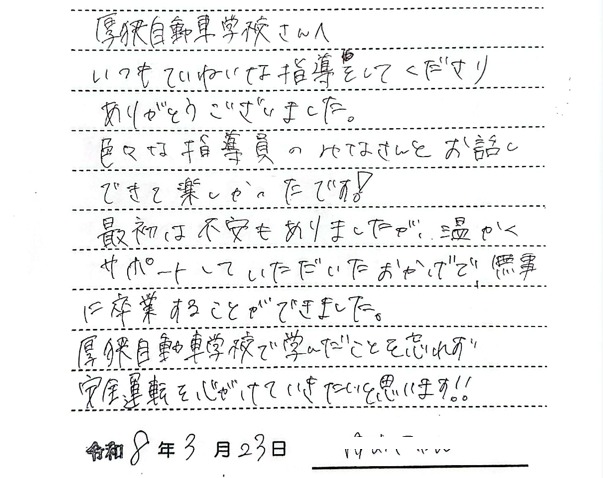 厚狭自動車学校さんへ
いつもていねいな指導をしてくださり
ありがとうございました。
色々な指導員のみなさんとお話し
できて楽しかったです!
最初は不安もありましたが、温かく
サポートしていただいたおかげで、無事
に卒業することができました。
厚狭自動車学校で学んだことを忘れず
安全運転を心がけていきたいと思います!!
令和8年3月23日